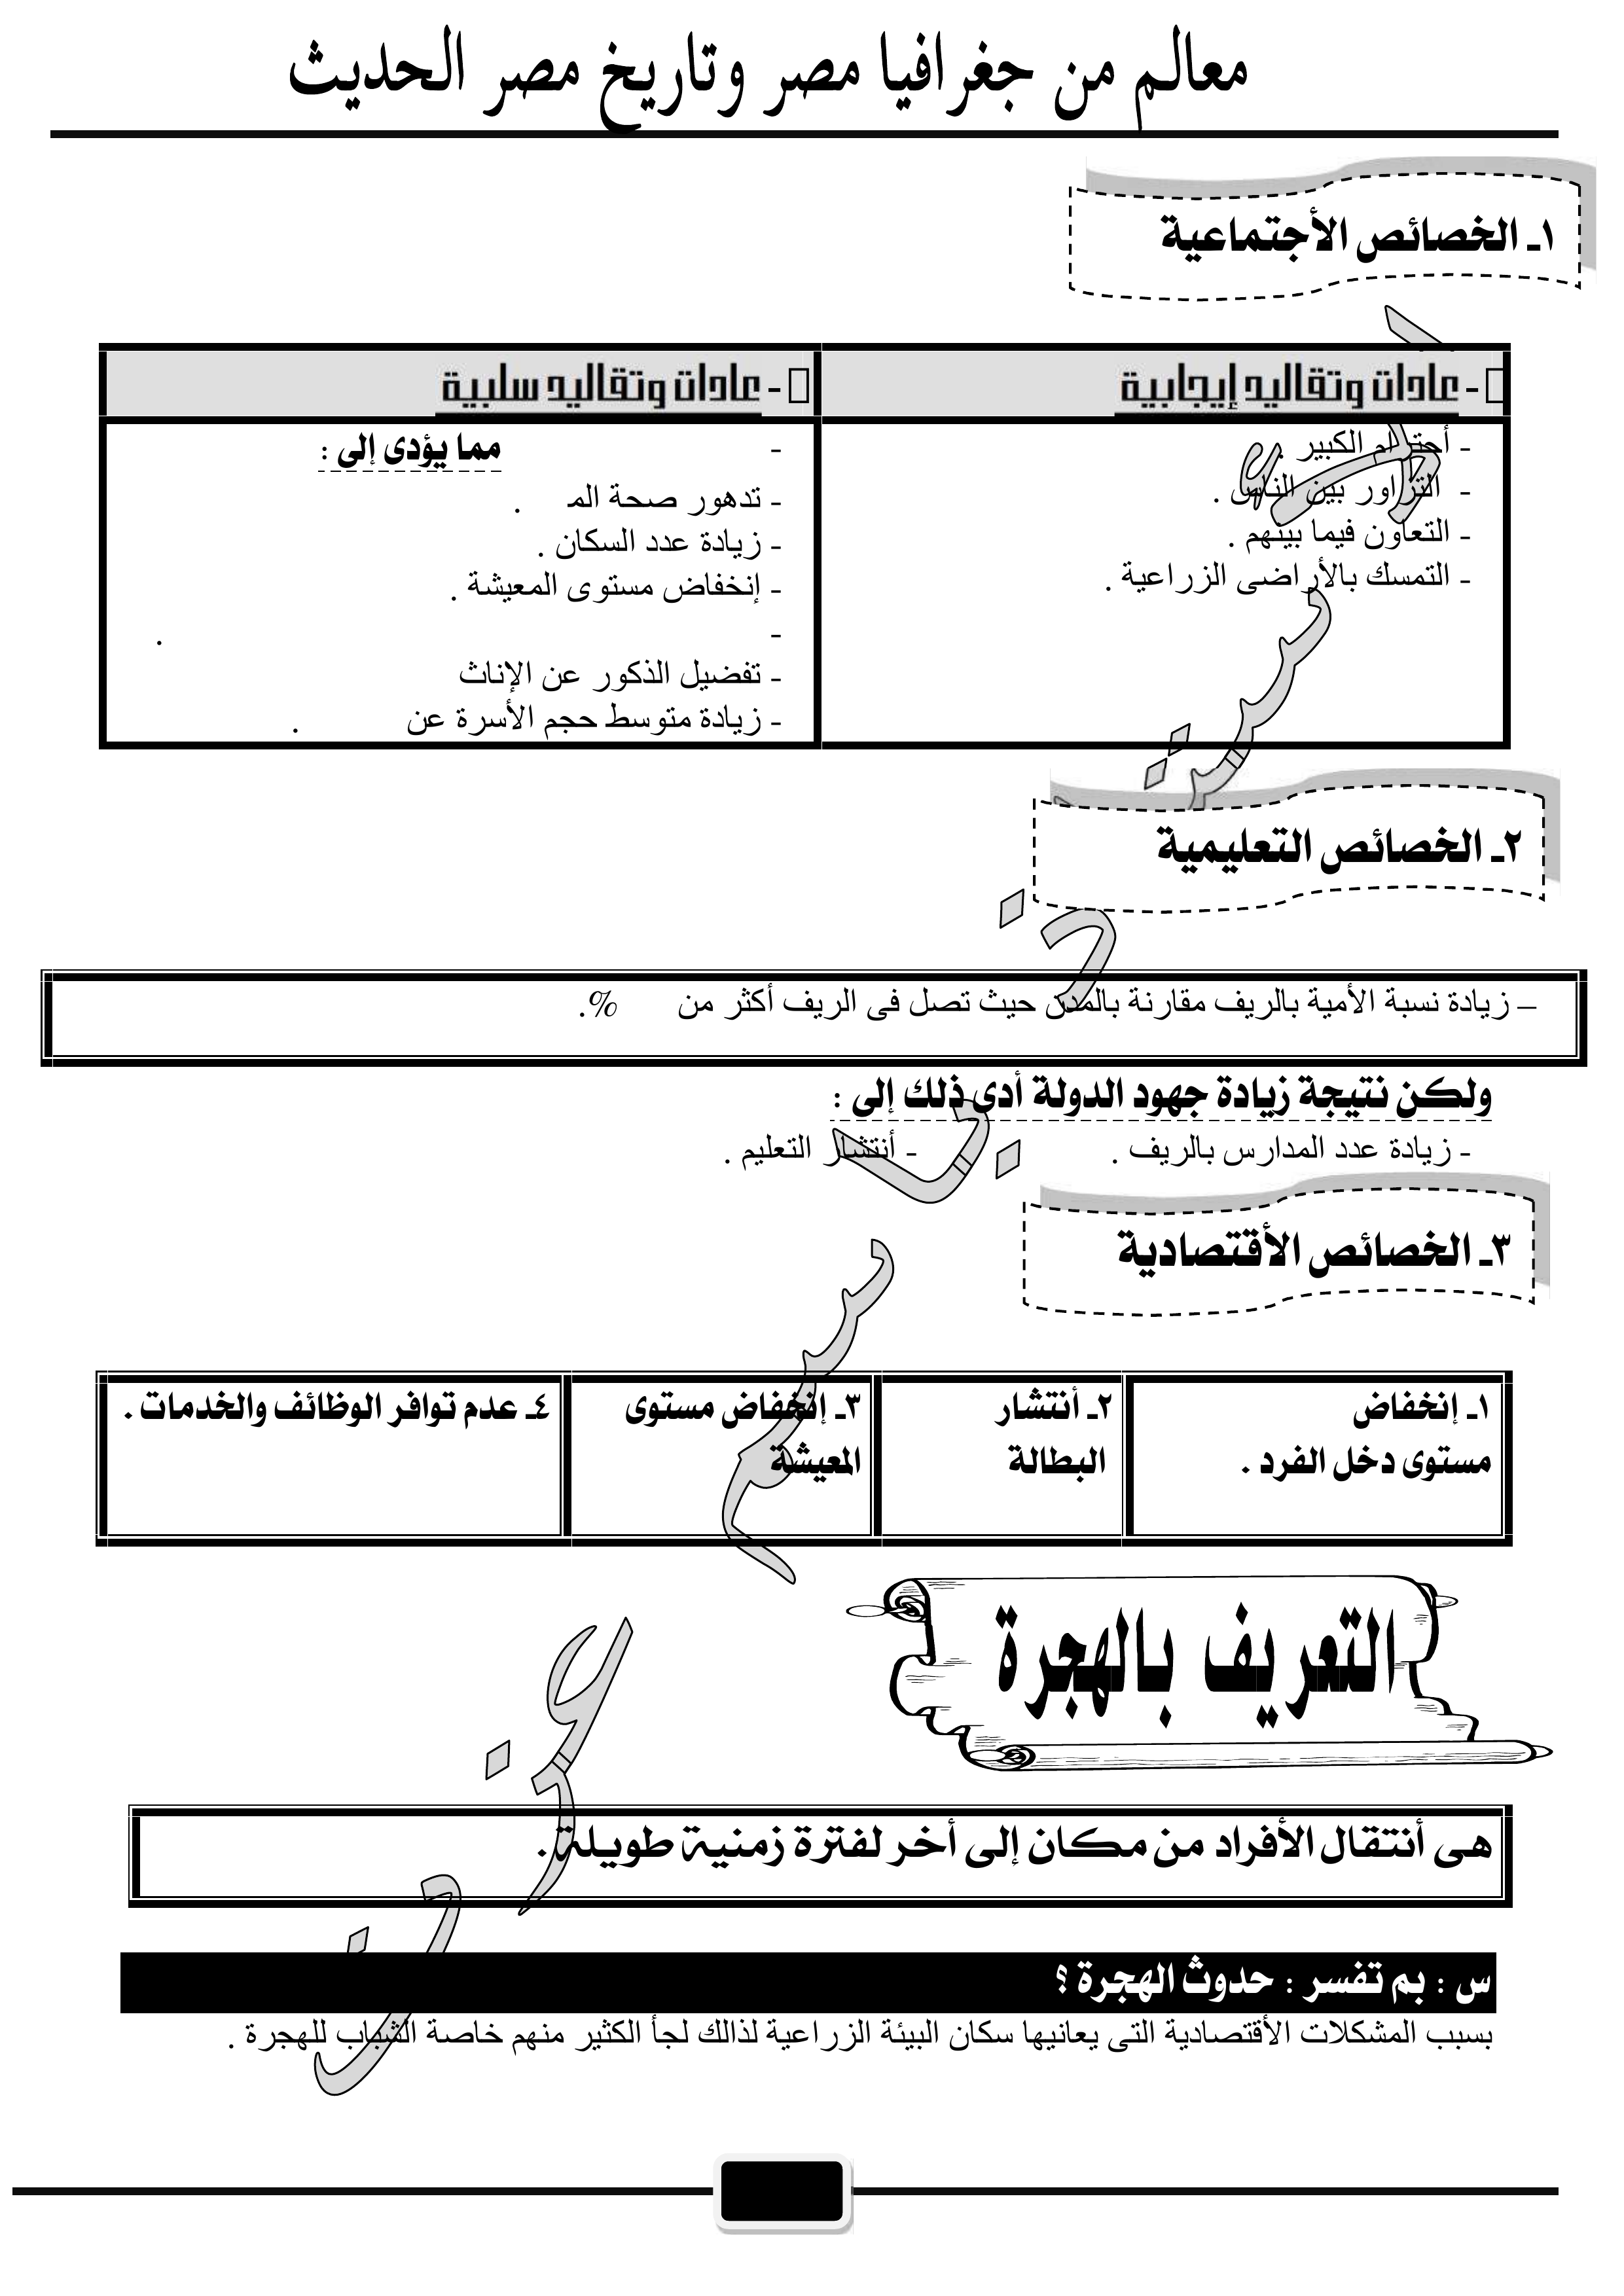 معالم من جغرافيا مصر وتاريخ مصر الحديث
١ـ الخصائص الأجتماعية
- عادات وتقاليد إيجابية
- أحترام الكبير .
- التزاور بين الناس .
- التعاون فيما بينهم .
- التمسك بالأراضى الزراعية .
- عادات وتقاليد سلبية
- مما يؤدى إلى :
- تدهور صحة المـ .
- زيادة عدد السكان .
- إنخفاض مستوى المعيشة .
- .
- تفضيل الذكور عن الإناث
- زيادة متوسط حجم الأسرة عن .
٢ـ الخصائص التعليمية
– زيادة نسبة الأمية بالريف مقارنة بالمدن حيث تصل فى الريف أكثر من %.
ولكن نتيجة زيادة جهود الدولة أدى ذلك إلى :
- زيادة عدد المدارس بالريف . - أنتشار التعليم .
٣ـ الخصائص الأقتصادية
١ـ إنخفاض
مستوى دخل الفرد .
٢ـ أنتشار
البطالة
٣ـ إنخفاض مستوى
المعيشة
٤ـ عدم توافر الوظائف والخدمات .
التعريف بالهجرة
هى أنتقال الأفراد من مكان إلى أخر لفترة زمنية طويلة .
س : بم تفسر : حدوث الهجرة ؟
بسبب المشكلات الأقتصادية التى يعانيها سكان البيئة الزراعية لذالك لجأ الكثير منهم خاصة الشباب للهجرة .